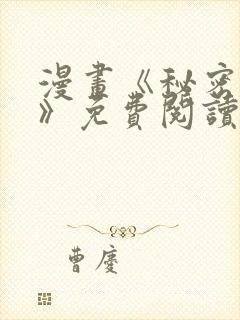 漫畫《秘密
》免費閱讀
曹慶